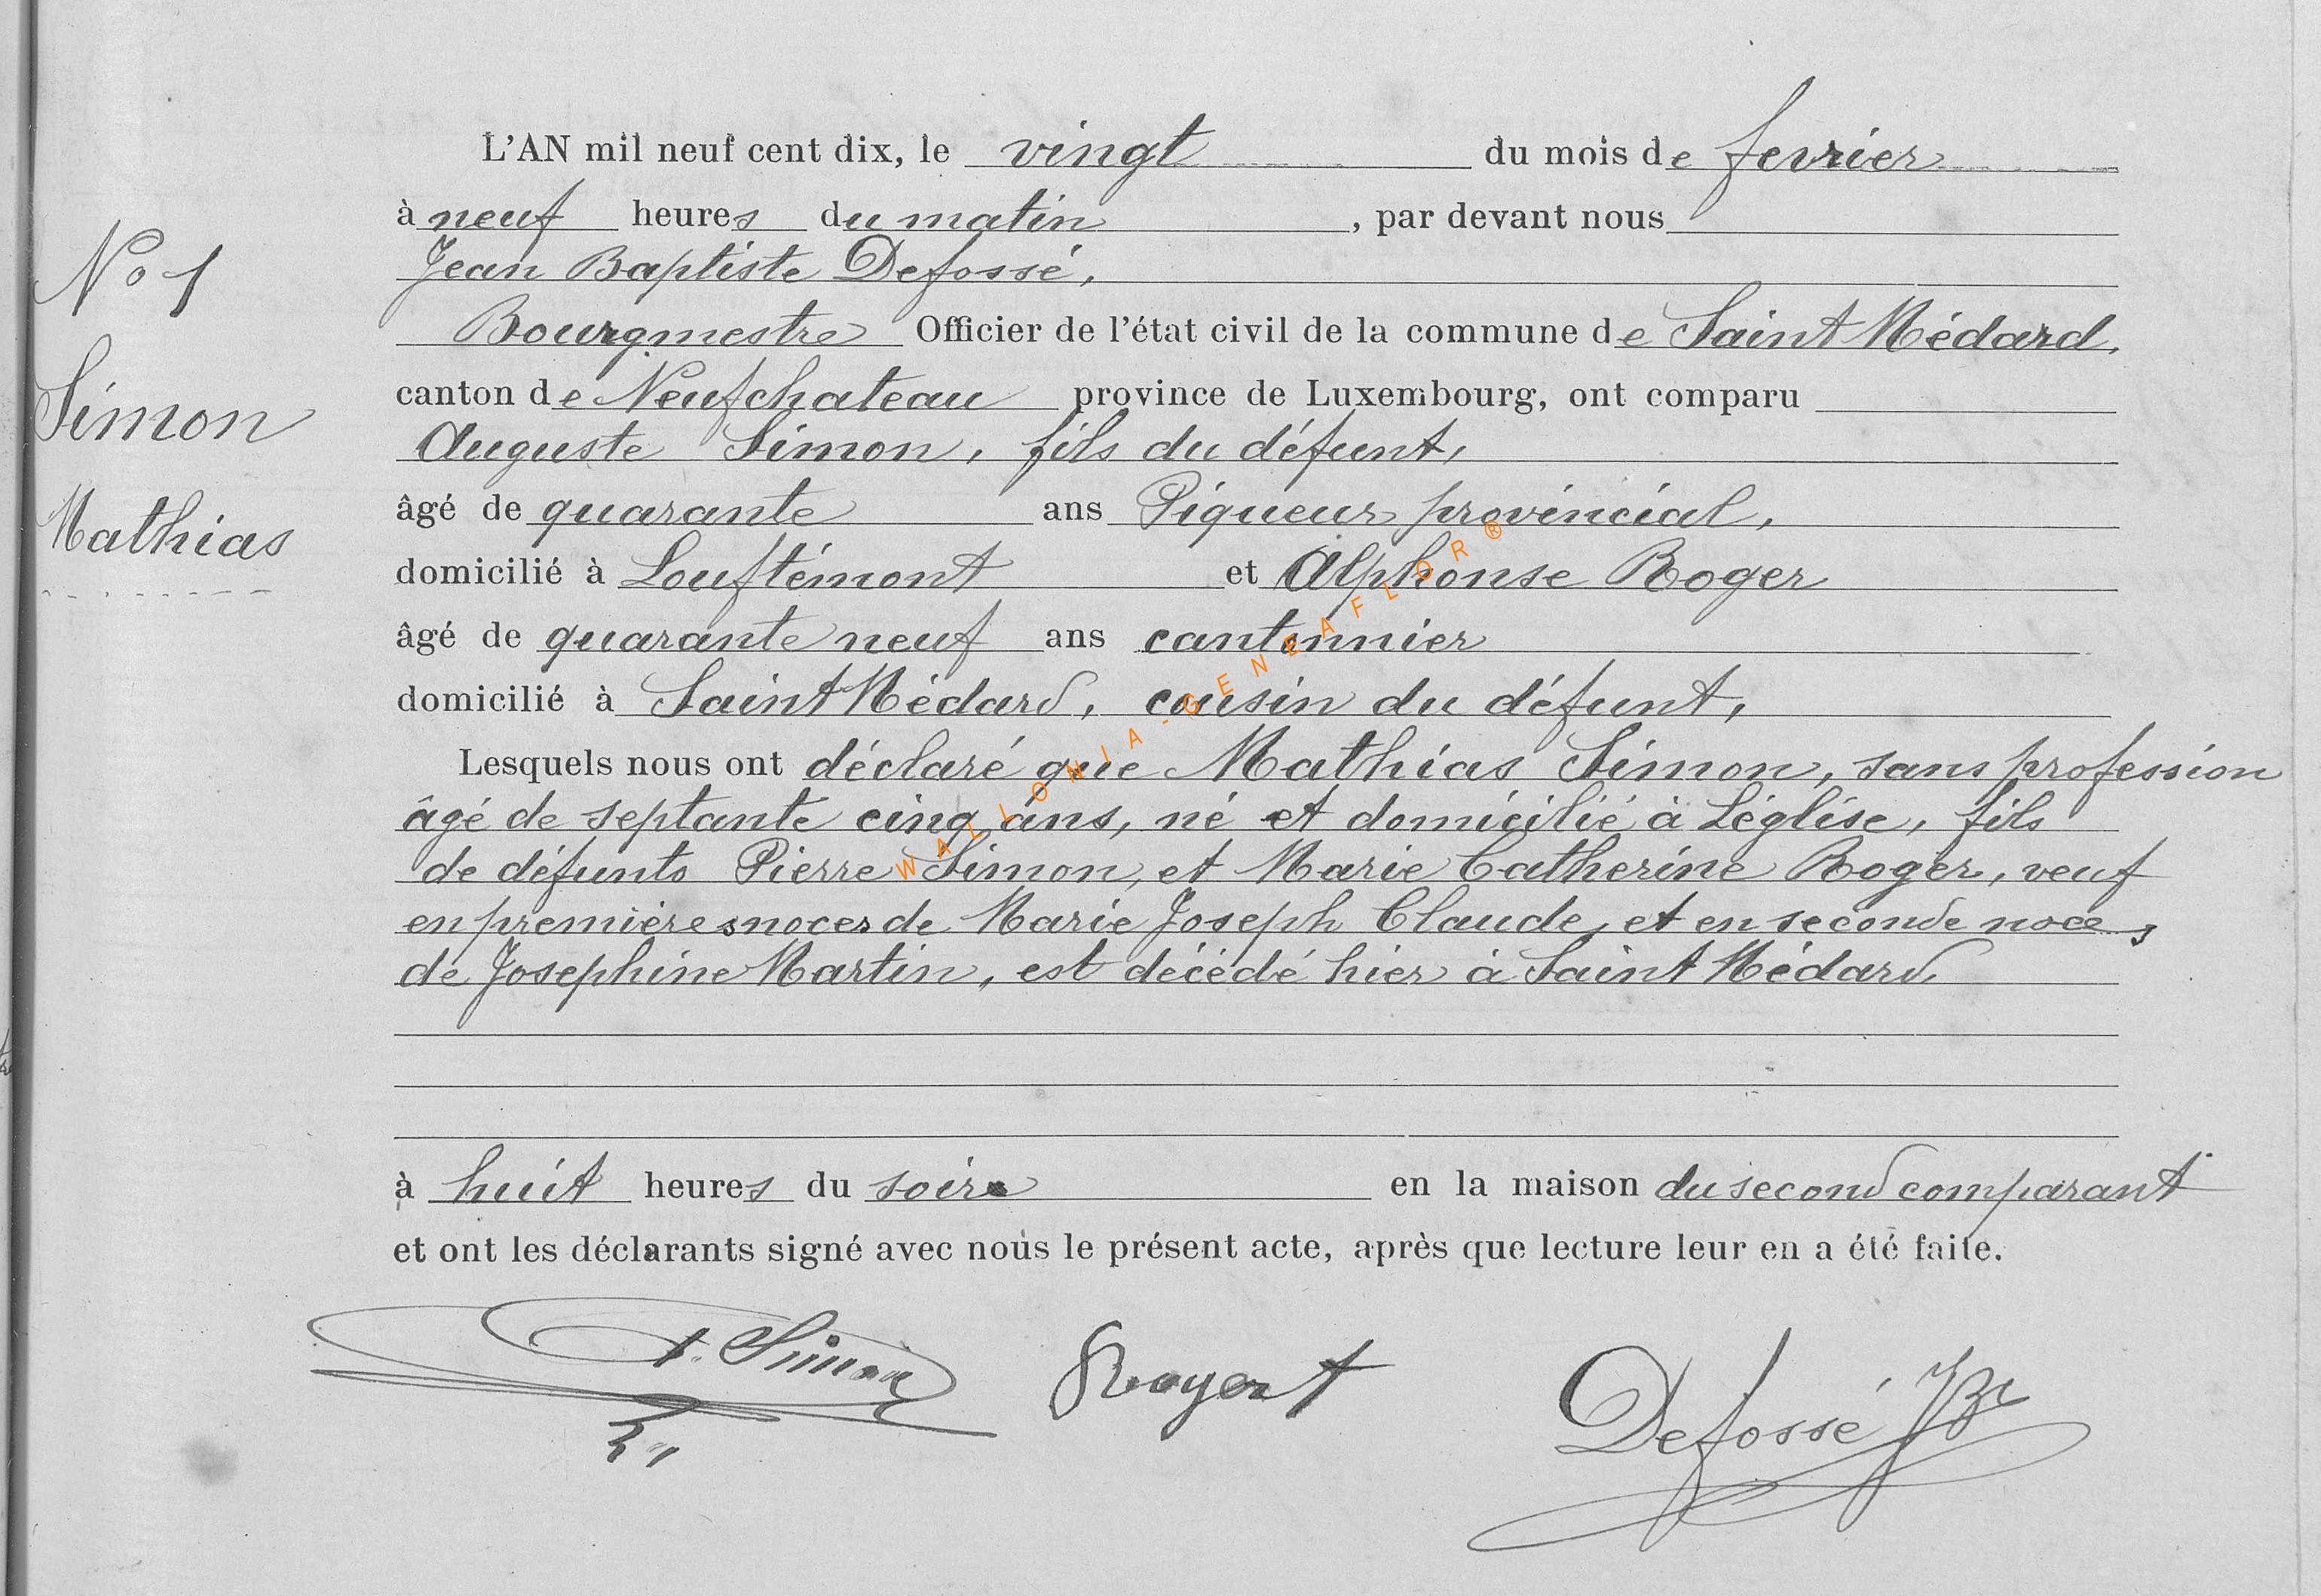 L'AN mil neuf cent dix, le vingt du mois de fevrier
à neuf heures du matin, par devant nous
Jean Baptiste Defossé,
Bourgmestre Officier de l'état civil de la commune de Saint Médard,
canton de Neufchateau province de Luxembourg, ont comparu
Auguste Simon, fils du défunt,
âgé de quarante ans Piqueur provincial,
domicilié à Louftémont et Alphonse Roger
âgé de quarante neuf ans cantonnier
domicilié à Saint Médard, cousin du défunt,
Lesquels nous ont déclaré que Mathias Simon, sans profession
âgé de septante cinq ans, né et domicilié à Léglise, fils
de défunts Pierre Simon, et Marie Catherine Roger, veuf
en premières noces de Marie Joseph Claude, et en seconde noces
de Josephine Martin, est décédé hier à Saint Médard,
à huit heures du soir en la maison du second comparant
et ont les déclarants signé avec nous le présent acte, après que lecture leur en a été faite.
N° 1
Simon
Mathias
A. Simon
Defossé JBte
WALLONIA-GENEAFLOR®